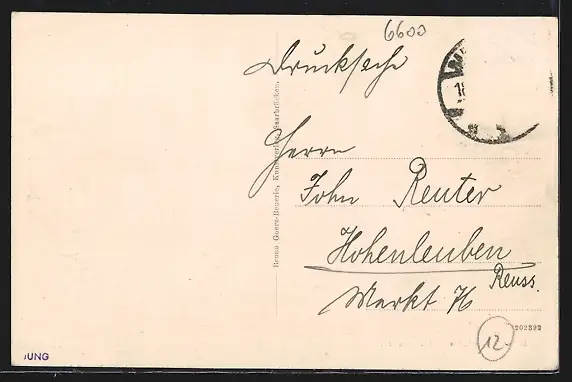 6600
Drucksache
Herrn
John Reuter
Hohenleuben
Reuss.
Markt 76
Bruno Goerz-Beuerle, Kunstverlag, Saarbrücken.
202392
12.-